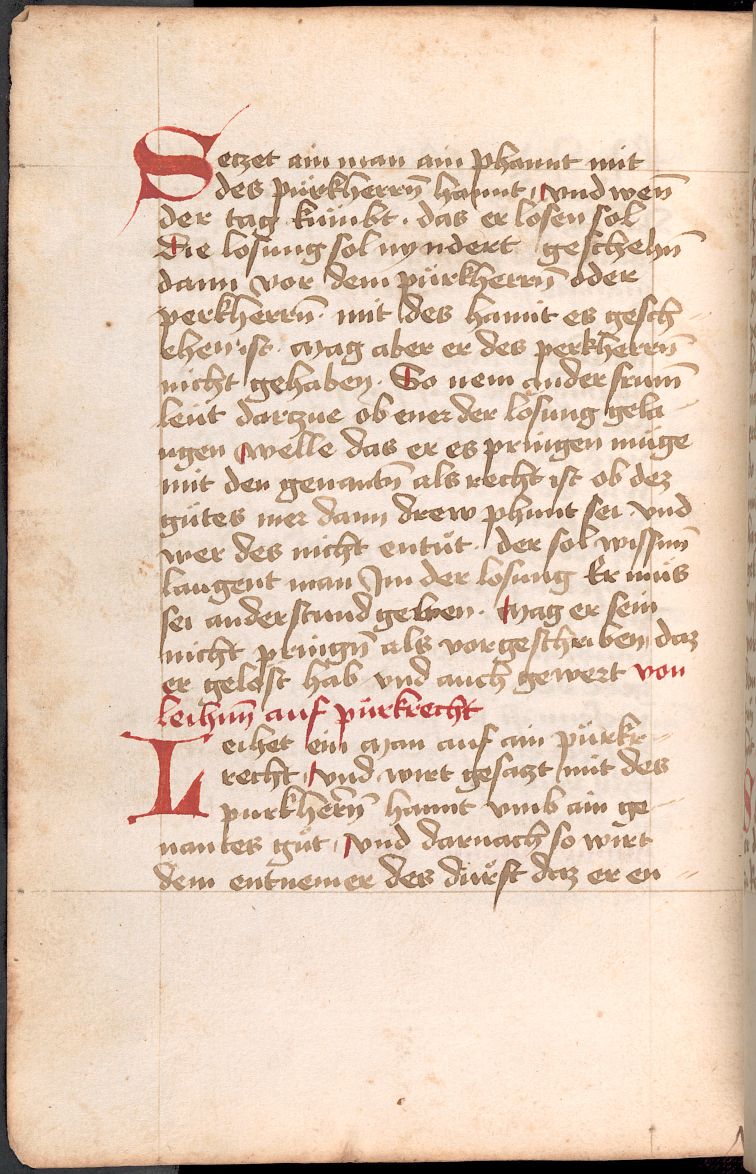 Seczet ain man ain phannt mit
des pürkherrn̄ hannt · vnd wen̄
der tag kumbt · das er losen sol
Die losung sol nyndert geschehn̄
dann vor dem pürkherrn̄ oder
perkherrn̄ · mit des hannt es gesch
ehen ist · Mag aber er des perkherrn̄
nicht gehaben · So nem ander frum̄
leut darczue ob ener der losung gela
ugen welle das er es pringen müge
mit den genantn̄ als recht ist ob dez
gütes mer dann drew phunt sei · vnd
wer des nicht entůt · der sol wissnn̄
laugent man Im der losung Er mus
sei anderstund geben · Mag er sein
nicht pringn̄ als vorgeschriben daz
er gelöst hab vnd auch gewert von
leihnn̄ auf pürkrecht
Leihet ein Man auf ain pürkr
recht · vnd wirt gesaczt mit des
purkherrn̄ hannt vmb ain ge
nantes gůt · vnd darnach so wirt
dem entnemer des dürft daz er en